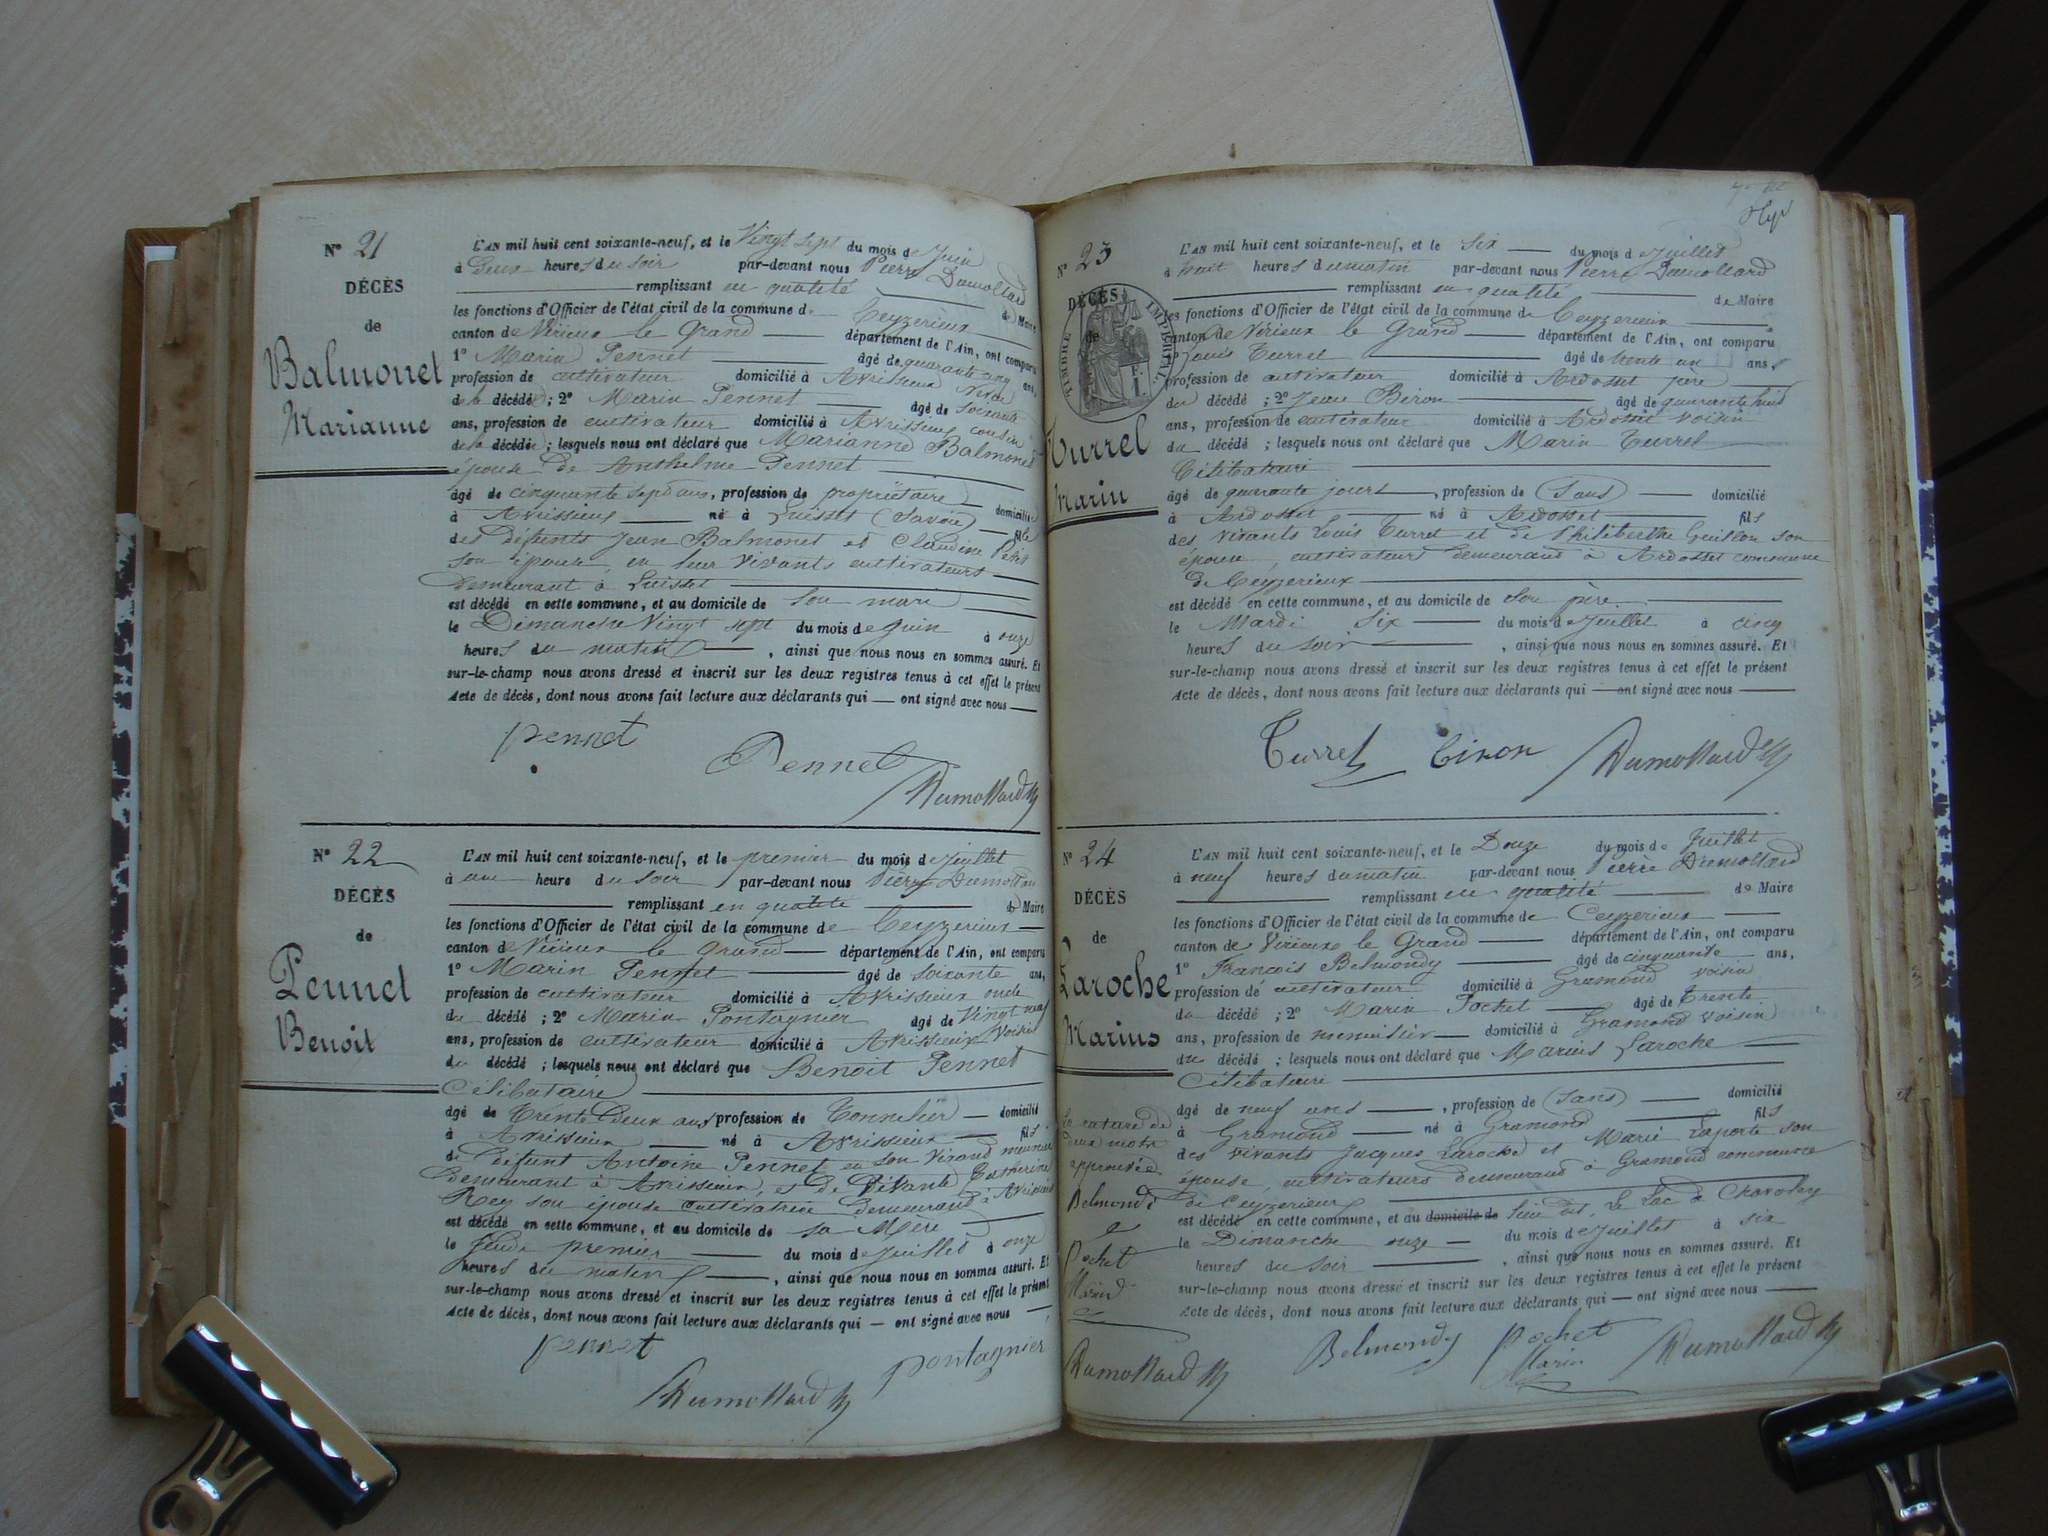 N° 21
DÉCÈS
de
Balmonet
Marianne
L'AN mil huit cent soixante-neuf, et le Vingt sept du mois de Juin
à Deux heures du soir par-devant nous Pierre Dumollard
remplissant en qualité de Maire
les fonctions d'Officier de l'état civil de la commune de Ceyzerieux
canton de Virieux le Grand département de l'Ain, ont comparu
1° Marin Pennet âgé de quarante cinq ans,
profession de cultivateur domicilié à Avrissieux
de la décédée ; 2° Marin Pennet âgé de soixante
ans, profession de cultivateur domicilié à Avrissieux cousin
de la décédée ; lesquels nous ont déclaré que Marianne Balmonet
épouse de Anthelme Pennet
âgé de cinquante sept ans, profession de propriétaire domicilié
à Avrissieux né à Luisset (Savoie) fille
des défunts Jean Balmonet et Claudine Petit
son épouse, en leur vivants cultivateurs
demeurant à Luisset
est décédé en cette commune, et au domicile de son mari
le Dimanche Vingt sept du mois de Juin à onze
heures du matin, ainsi que nous nous en sommes assuré. Et
sur-le-champ nous avons dressé et inscrit sur les deux registres tenus à cet effet le présent
Acte de décès, dont nous avons fait lecture aux déclarants qui — ont signé avec nous
pennet
Pennet
Dumollard
N° 22
DÉCÈS
de
Pennet
Benoit
L'AN mil huit cent soixante-neuf, et le premier du mois de Juillet
à une heure du soir par-devant nous Pierre Dumollard
remplissant en qualité de Maire
les fonctions d'Officier de l'état civil de la commune de Ceyzerieux
canton de Virieux le Grand département de l'Ain, ont comparu
1° Marin Pennet âgé de soixante ans,
profession de cultivateur domicilié à Avrissieux oncle
du décédé ; 2° Marin Pontagnier âgé de Vingt neuf
ans, profession de cultivateur domicilié à Avrissieux Voisin
du décédé ; lesquels nous ont déclaré que Benoit Pennet
Célibataire
âgé de Trente Deux ans, profession de Tonnelier domicilié
à Avrissieux né à Avrissieux fils
de défunt Antoine Pennet en son vivant meunier
demeurant à Avrissieux, et de Vivante Catherine
Rey son épouse cultivatrice demeurant à Avrissieux
est décédé en cette commune, et au domicile de sa Mère
le Jeudi premier du mois de Juillet à onze
heures du matin, ainsi que nous nous en sommes assuré. Et
sur-le-champ nous avons dressé et inscrit sur les deux registres tenus à cet effet le présent
Acte de décès, dont nous avons fait lecture aux déclarants qui — ont signé avec nous
pennet
Dumollard
pontagnier
N° 23
DÉCÈS
de
TIMBRE IMPÉRIAL
Turrel
Marin
L'AN mil huit cent soixante-neuf, et le Six du mois de Juillet
à huit heures du matin par-devant nous Pierre Dumollard
remplissant en qualité de Maire
les fonctions d'Officier de l'état civil de la commune de Ceyzerieux
canton de Virieux le Grand département de l'Ain, ont comparu
1° Louis Turrel âgé de trente un ans,
profession de cultivateur domicilié à Ardosset père
du décédé ; 2° Jean Biron âgé de quarante huit
ans, profession de cultivateur domicilié à Ardosset voisin
du décédé ; lesquels nous ont déclaré que Marin Turrel
Célibataire
âgé de quarante jours, profession de (Sans) domicilié
à Ardosset né à Ardosset fils
des vivants Louis Turrel et de Philiberthe Guillon son
épouse, cultivateurs demeurant à Ardosset commune
de Ceyzerieux
est décédé en cette commune, et au domicile de son père
le Mardi Six du mois de Juillet à cinq
heures du soir, ainsi que nous nous en sommes assuré. Et
sur-le-champ nous avons dressé et inscrit sur les deux registres tenus à cet effet le présent
Acte de décès, dont nous avons fait lecture aux déclarants qui — ont signé avec nous
Turrel Biron Dumollard
N° 24
DÉCÈS
de
Laroche
Marius
L'AN mil huit cent soixante-neuf, et le Douze du mois de Juillet
à neuf heures du matin par-devant nous Pierre Dumollard
remplissant en qualité de Maire
les fonctions d'Officier de l'état civil de la commune de Ceyzerieux
canton de Virieux le Grand département de l'Ain, ont comparu
1° François Belmondy âgé de cinquante ans,
profession de cultivateur domicilié à Gramond voisin
du décédé ; 2° Marin Pochet âgé de Trente
ans, profession de menuisier domicilié à Gramond voisin
du décédé ; lesquels nous ont déclaré que Marius Laroche
Célibataire
âgé de neuf ans, profession de (Sans) domicilié
à Gramond né à Gramond fils
des vivants Jacques Laroche et Marie Laporte son
épouse, cultivateurs demeurant à Gramond commune
de Ceyzerieux
est décédé en cette commune, et au domicile de lieu dit, Le Lac de
le Dimanche onze du mois de Juillet à six
heures du soir, ainsi que nous nous en sommes assuré. Et
sur-le-champ nous avons dressé et inscrit sur les deux registres tenus à cet effet le présent
Acte de décès, dont nous avons fait lecture aux déclarants qui — ont signé avec nous
La rature de
deux mots
approuvée
Belmondy
Pochet
Marin
Dumollard
Belmondy Pochet Marin Dumollard